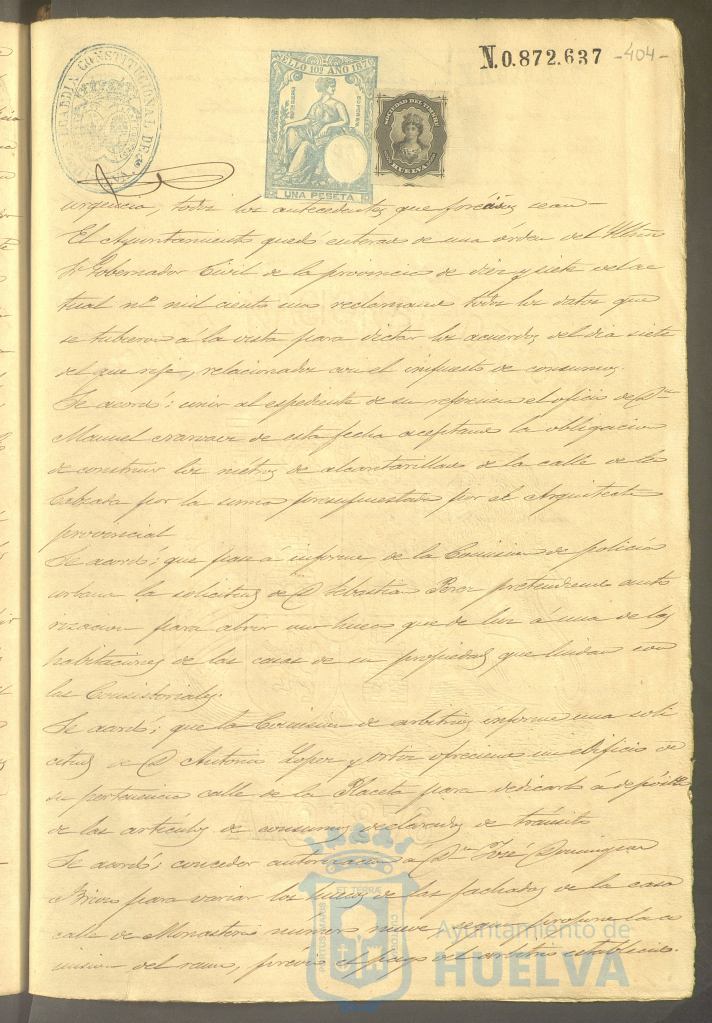 N.0.872.637 -404-
ALCALDIA CONSTITUCIONAL DE
SELLO 10º AÑO 187
UNA PESETA
SOCIEDAD DEL TIMBRE
HUELVA
urgencia, todos los antecedentes que precisos sean
El Ayuntamiento quedó enterado de una órden del Illmo
Sr Gobernador Civil de la provincia de diez y siete del ac
tual nº mil ciento uno reclamando todos los datos que
se tubieron á la vista para dictar los acuerdos del dia siete
del que rije, relacionados con el impuesto de consumos.
Se acordó: unir al espediente de su referencia el oficio de Dn
Manuel de esta fecha aceptando la obligacion
de construir los métros de alcantarillado de la calle de la
Calzada por la suma presupuestada por el Arquitecto
provincial
Se acordó; que pase á informe, de la Comision de policia
urbana la solicitud de D Sebastian Perez pretendiendo auto
rizacion para abrir un hueco que de luz á una de las
habitaciones de las casas de su propiedad que lindan con
las Consistoriales.
Se acordó; que la Comision de arbitrios informe una soli
citud de D Antonio Lopez y Ortiz ofreciendo un edificio de
su pertenencia calle de la Placeta para dedicarlo á depósito
de los artículos de consumos declarados de tránsito
Se acordó; conceder autorizacion a Dn José Dominguez
para variar los huecos de las fachadas de la casa
calle de Monasterio número nueve, segun propone la co
mision del ramo, prévio el pago del arbitrio establecido.
PORTUS MARIS ET TERRAE CUSTODIA
Ayuntamiento de
HUELVA